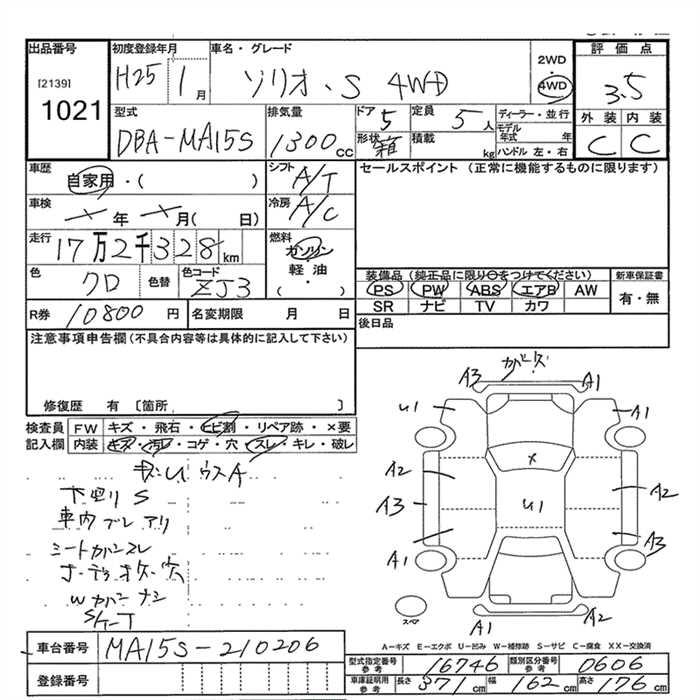 出品番号
[2139]
1021
初度登録年月
H25 1月
車名・グレード
ソリオ・S 4WD
2WD
・
4WD
評価点
3.5
外装 内装
C C
型式
DBA-MA15S
排気量
1300cc
ドア 5
形状 箱
定員 5人
積載 kg
ディーラー・並行
モデル年式 年
ハンドル 左・右
車歴
自家用・( )
シフト
A/T
セールスポイント (正常に機能するものに限ります)
車検
年 月( 日)
冷房
A/C
走行
17万2千328km
燃料
ガソリン
軽・油
・
( )
色
クロ
色替
色コード
ZJ3
装備品 (純正品に限り○をつけてください)
PS PW ABS エアB AW
SR ナビ TV カワ
新車保証書
有・無
R券 10800円
名変期限 月 日
後日品
注意事項申告欄 (不具合内容等は具体的に記入して下さい)
修復歴 有 〔箇所 〕
検査員記入欄
FW キズ・飛石・ヒビ割・リペア跡・×要
内装 キズ・汚レ・コゲ・穴・スレ・キレ・破レ
キズU ウスA
下廻り S
車内 ブレ アリ
シートカバースレ
オーディオ ケズ 穴
Wカバーナシ
A3 A1
U1 A1
A2
×
A3 U1 A2
A1 A3
A1 A2
スペア
車台番号 MA15S-210206
登録番号
A－キズ E－エクボ U－凹み W－補修跡 S－サビ C－腐食 XX－交換済
型式指定番号 参考 16746 類別区分番号 参考 0606
車庫証明用 参考 長さ 371cm 幅 162cm 高さ 176cm